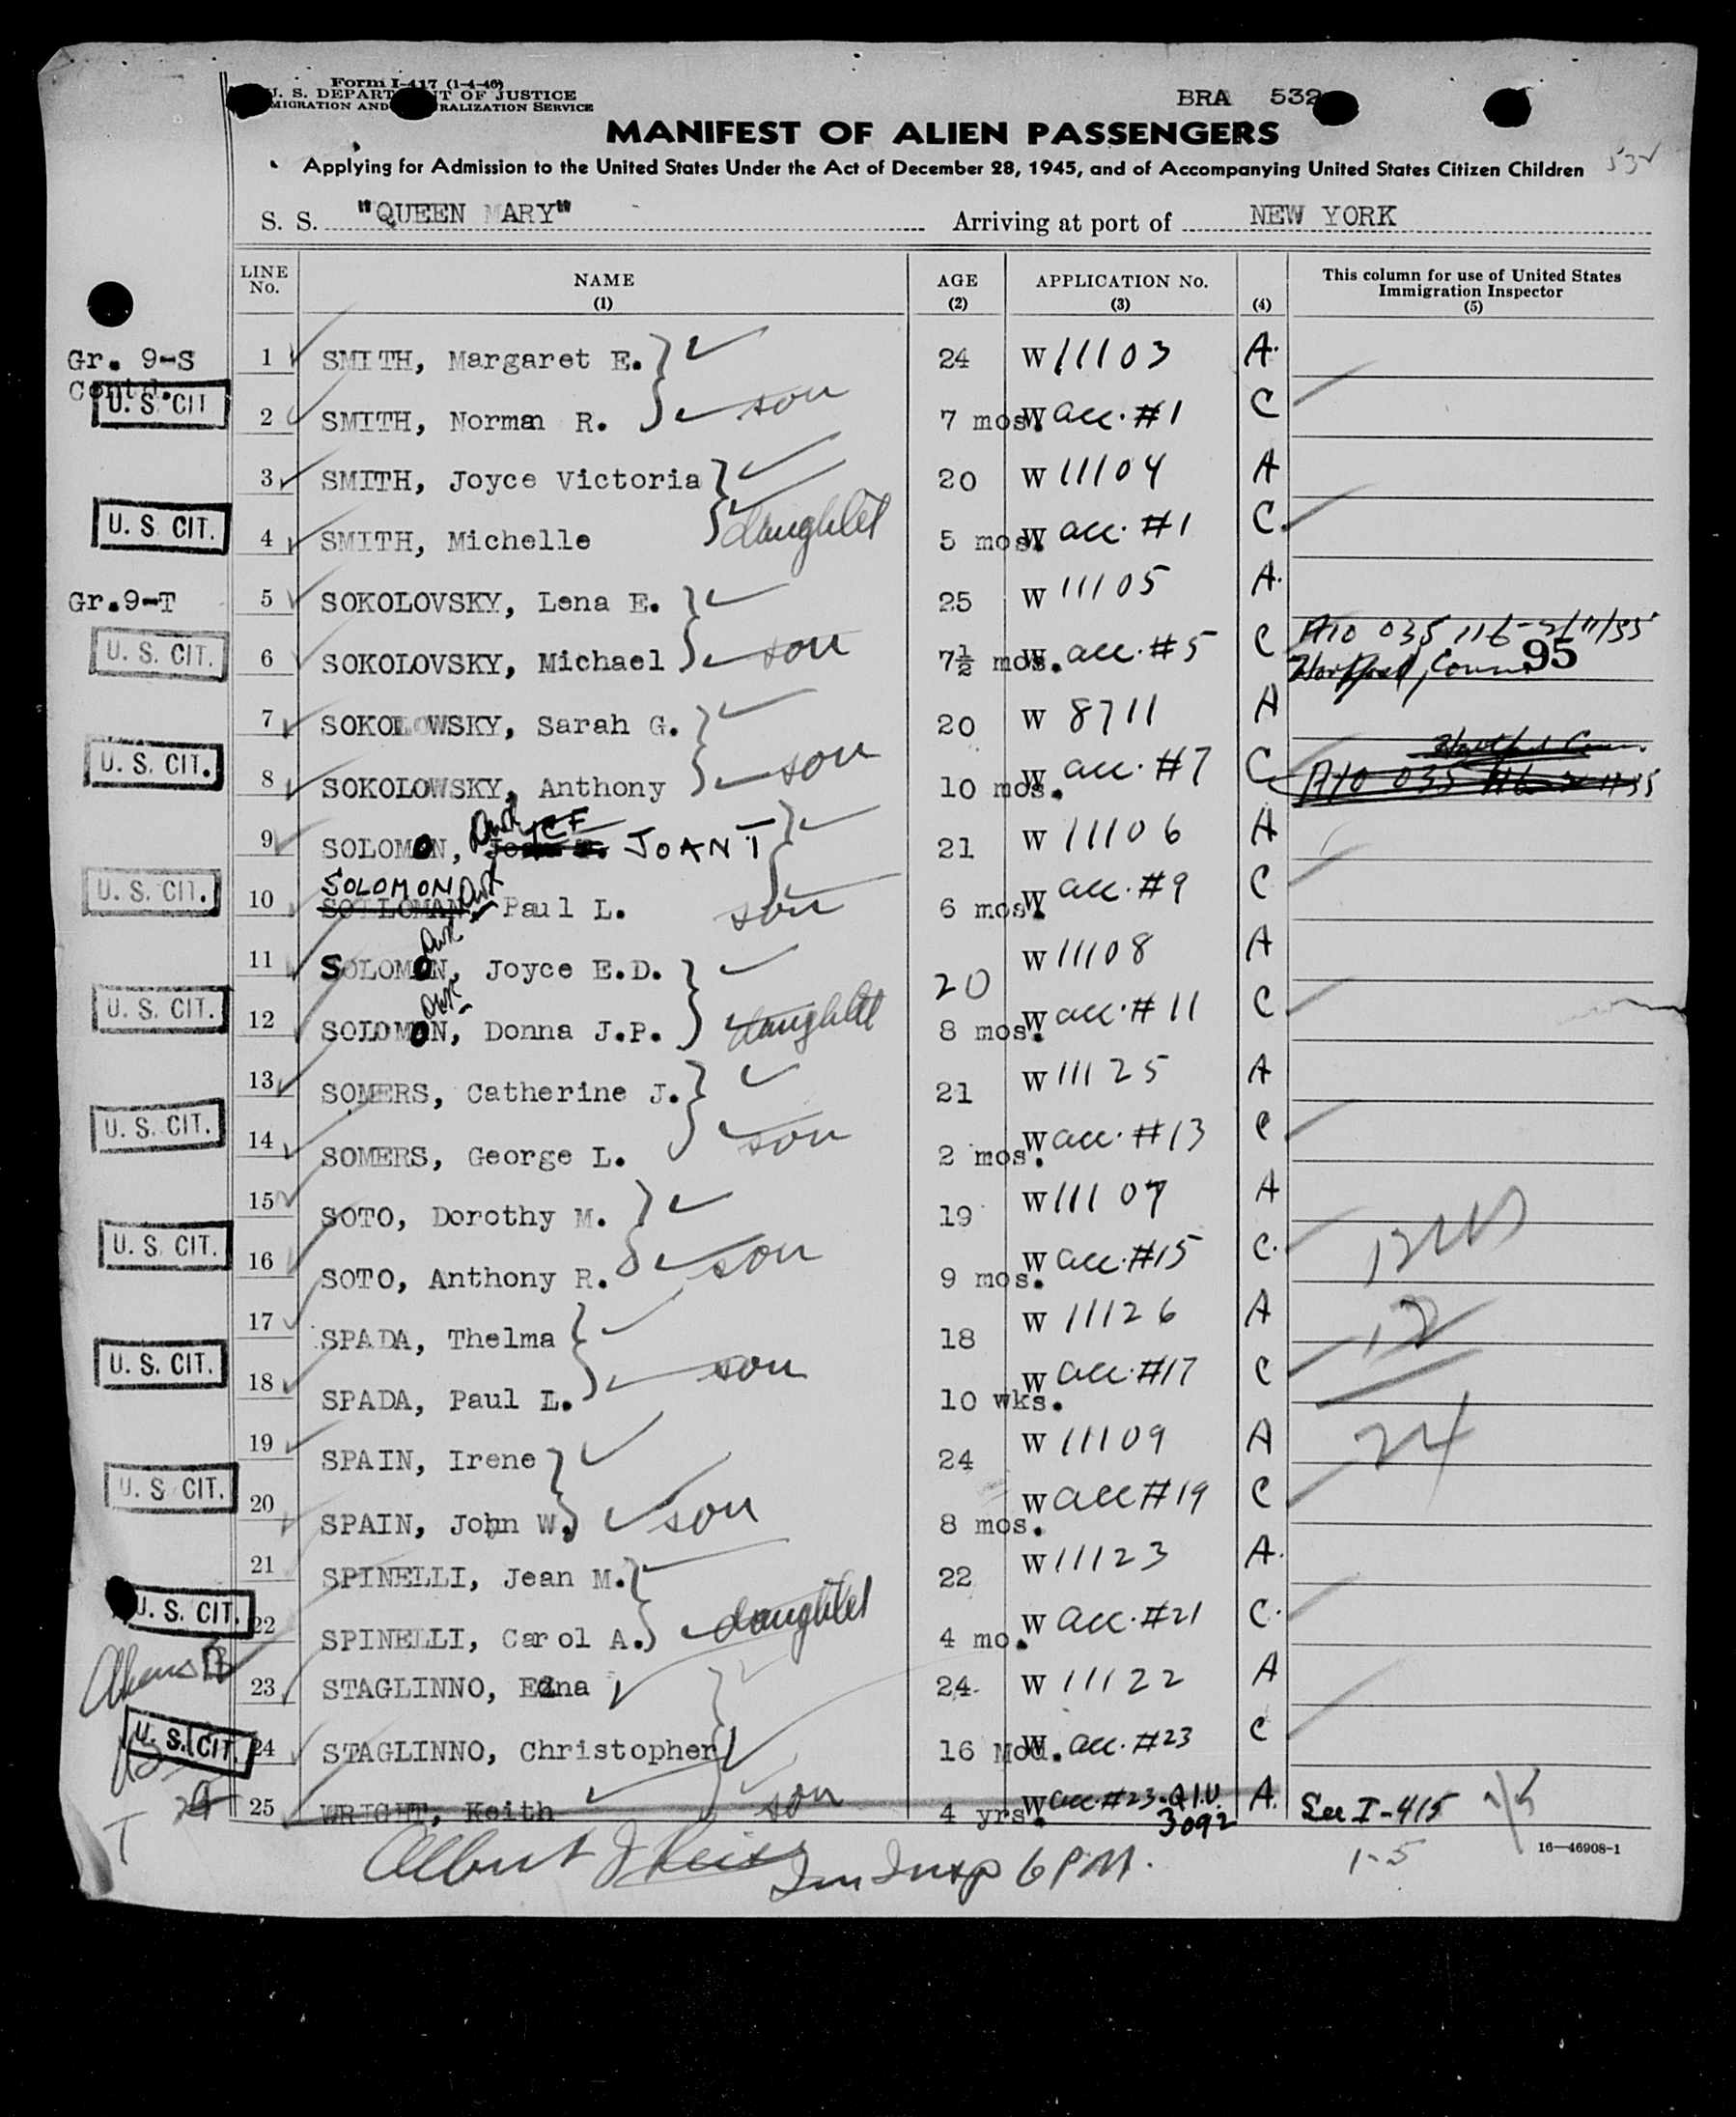 Form I-417 (1-4-46)
U. S. DEPART T OF JUSTICE
MIGRATION AND RALIZATION SERVICE
BRA 532
MANIFEST OF ALIEN PASSENGERS
Applying for Admission to the United States Under the Act of December 28, 1945, and of Accompanying United States Citizen Children 532
S. S. "QUEEN MARY" Arriving at port of NEW YORK
LINE No. NAME (1) AGE (2) APPLICATION No. (3) (4) This column for use of United States Immigration Inspector (5)
Gr. 9-S 1 SMITH, Margaret E. 24 W 11103 A.
Contd. U. S. CIT 2 SMITH, Norman R. son 7 mos. W acc. #1 C
3 SMITH, Joyce Victoria 20 W 11104 A
U. S. CIT. 4 SMITH, Michelle daughter 5 mos. W acc. #1 C
Gr.9-T 5 SOKOLOVSKY, Lena E. 25 W 11105 A.
U. S. CIT. 6 SOKOLOVSKY, Michael son 7½ mos. W acc. #5 C A10 035 116 - 2/11/55
Hartford, Conn. 95
7 SOKOLOWSKY, Sarah G. 20 W 8711 A
U. S. CIT. 8 SOKOLOWSKY, Anthony son 10 mos. W acc. #7 C Hartford Conn.
A10 035 116
9 SOLOMON, JOAN T 21 W 11106 A
U. S. CIT. 10 SOLOMON Paul L. son 6 mos. W acc. #9 C
11 SOLOMON, Joyce E.D. 20 W 11108 A
U. S. CIT. 12 SOLOMON, Donna J.P. daughter 8 mos. W acc. #11 C
13 SOMERS, Catherine J. 21 W 11125 A
U. S. CIT. 14 SOMERS, George L. son 2 mos. W acc. #13 C
15 SOTO, Dorothy M. 19 W 11107 A
U. S. CIT. 16 SOTO, Anthony R. son 9 mos. W acc. #15 C.
17 SPADA, Thelma 18 W 11126 A 12
U. S. CIT. 18 SPADA, Paul L. son 10 wks. W acc. #17 C
19 SPAIN, Irene 24 W 11109 A 24
U. S. CIT. 20 SPAIN, John W. son 8 mos. W acc #19 C
21 SPINELLI, Jean M. 22 W 11123 A.
U. S. CIT. 22 SPINELLI, Carol A. daughter 4 mo. W acc. #21 C.
23 STAGLINNO, Edna 24 W 11122 A
U. S. CIT. 24 STAGLINNO, Christopher 16 Mos. W acc. #23 C
25 WRIGHT, Keith son 4 yrs. W acc. #23 - Q.I.V. 3092 A. See I-415
Albert J Reiss Im Insp 6 PM. 1-5 16—46908-1